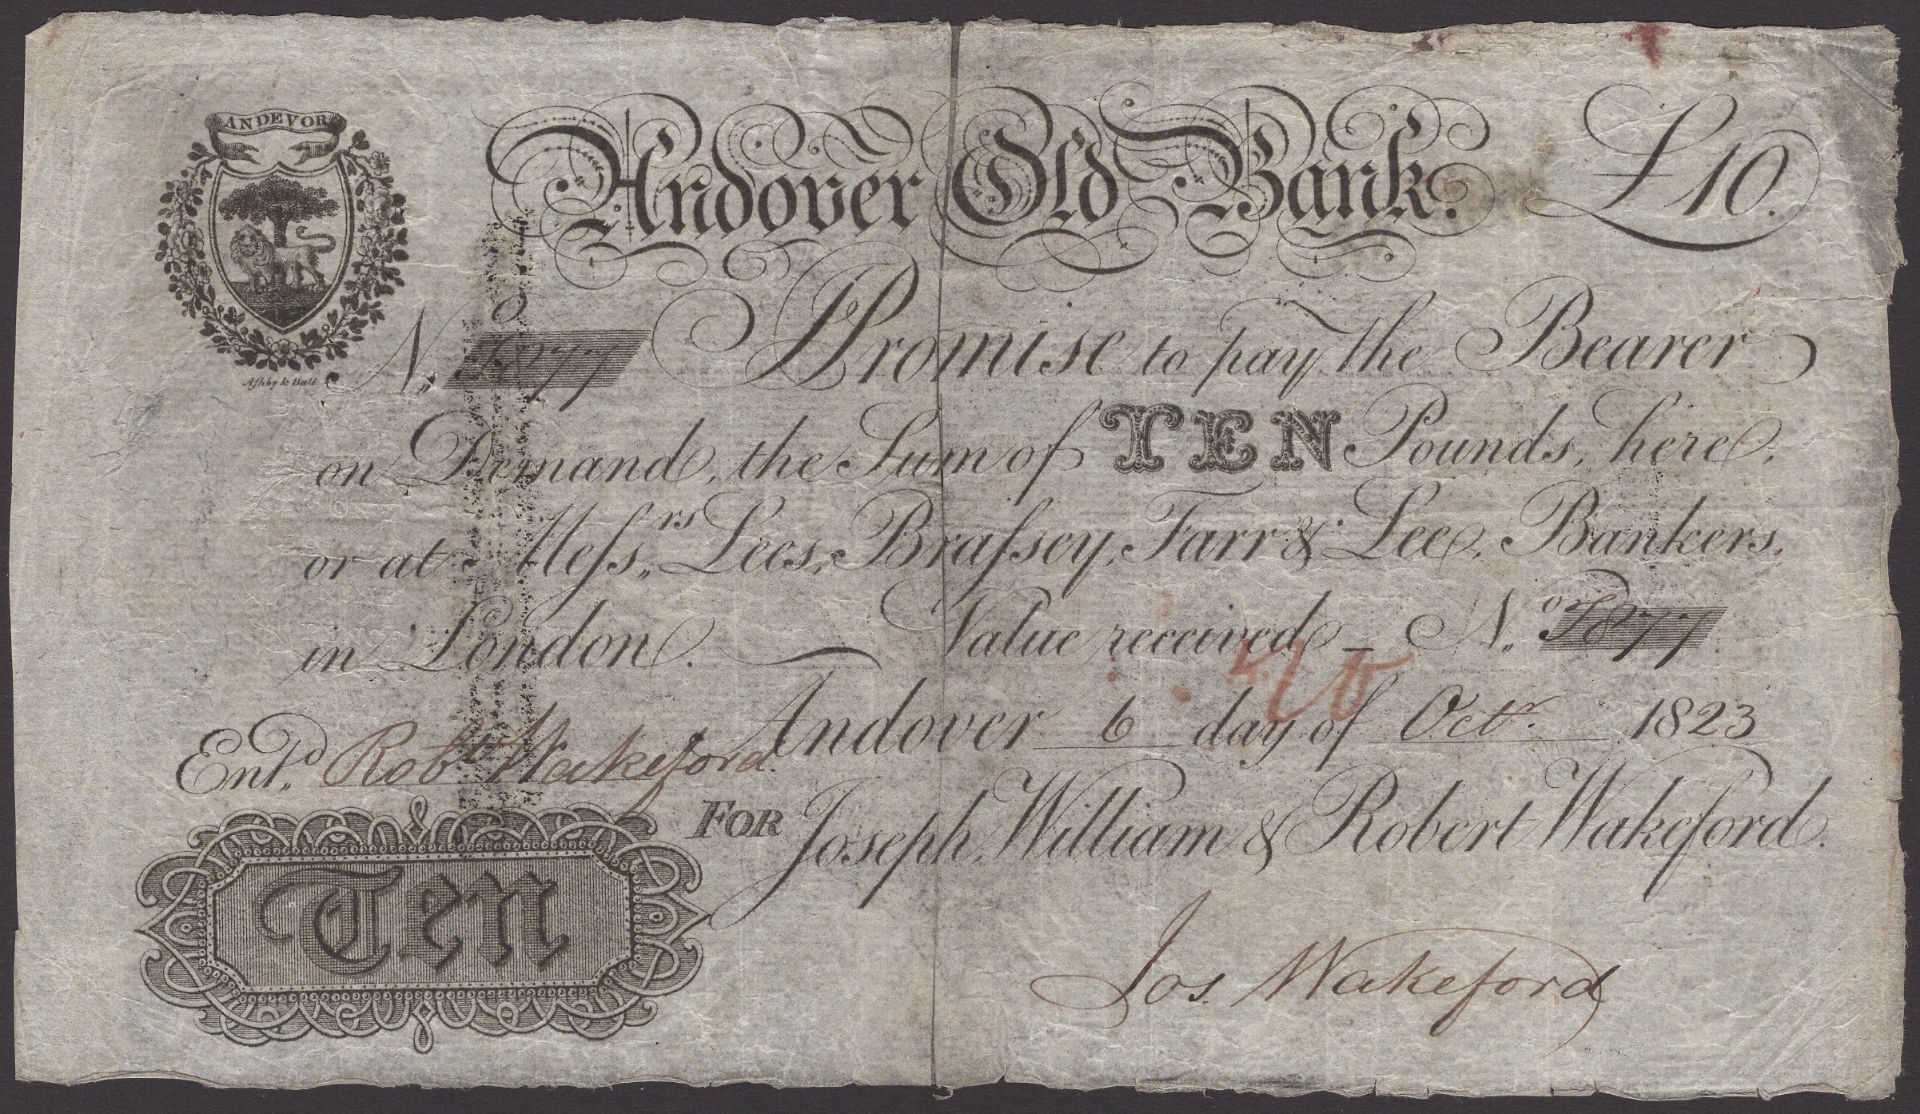 ANDEVOR
Andover Old Bank. £10.
No. 1877 I Promise to pay the Bearer
on Demand, the Sum of TEN Pounds, here,
or at Meſs.rs Lees, Braſsey, Farr & Lee, Bankers,
in London. Value received - No. 1877
Andover 6 day of Octr. 1823
Entd. Robt Wakeford
FOR Joseph, William & Robert Wakeford.
Ten
Jos. Wakeford